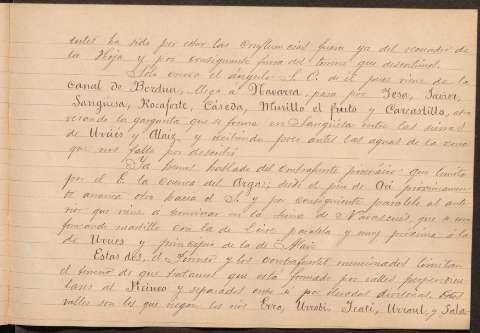 antes ha sido por estar las confluencias fuera ya del recuadro de
la Hoja y por consiguiente fuera del terreno que describimos.
Solo cruza el ángulo S. E. de el pues viene de la
Canal de Berdun, llega a Navarra, pasa por Yesa, Javier,
Sangüesa, Rocaforte, Cáseda, Murillo el fruto y Carcastillo, atra
vesando la garganta que se forma en Sangüesa entre las sierras
de Urúes y Alaiz y recibiendo poco antes las aguas de la
que nos falta por describir
Ya hemos hablado del contrafuerte pirenáico que limita
por el E. la cuenca del Arga; desde el pico de Ori proximamen
te arranca otro hacia el S. y por consiguiente paralelo al ante
rior que viene a terminar en la Sierra de Navascués, que a su
formando martillo con la de Leire paralela y muy próxima á la
de Urúes y principio de la de Alaiz
Estas dos, el Pirineo y los contrafuertes mencionados limitan
el terreno de que tratamos que está formado por valles perpendicu
lares al Pirineo y separados entre si por elevadas divisorias. Estos
valles son los que riegan los rios Erro, Urrobi, Irati, Urraul y Sala